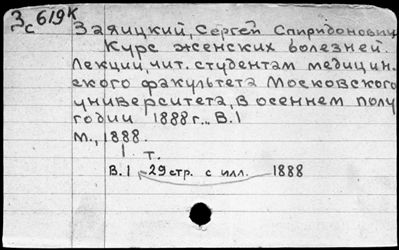 З 619К
с
Заяицкий, Сергей Спиридонович
Курс женских болезней.
Лекции, чит. студентам медицин.
ского факультета Московского
университета, в осеннем полу
годии 1888 г.. В.1
М., 1888.
1 т.
В.1 29 стр. с илл. 1888